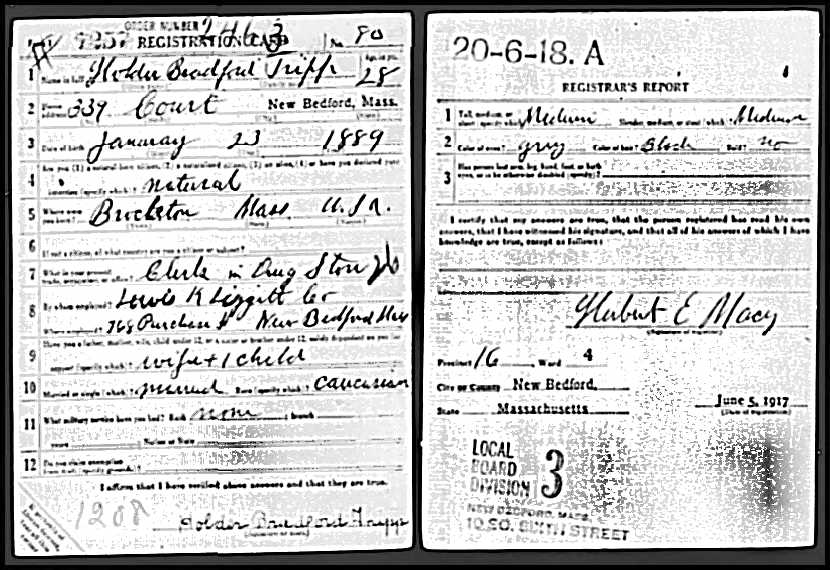 ORDER NUMBER 2463
REGISTRATION CARD No. 80
1 Name in full Holder Bradford Tripp Age in yrs. 28
2 Home address 339 Court New Bedford, Mass.
3 Date of birth January 23 1889
4 Are you (1) a natural born citizen, (2) a naturalized citizen, (3) an alien, (4) or have you declared your
intention (specify which)? natural
5 Where were you born? Brockton Mass U.S.A.
6 If not a citizen, of what country are you a citizen or subject?
7 What is your present trade, occupation, or office? Clerk in Drug Store
8 By whom employed? Lewis K Liggitt Co
Where employed? 768 Purchase New Bedford Mass
9 Have you a father, mother, wife, child under 12, or a sister or brother under 12, solely dependent on you for
support (specify which)? wife + 1 child
10 Married or single (which)? married Race (specify which)? Caucasian
11 What military service have you had? Rank none branch
years Nation or State
12 Do you claim exemption from draft (specify grounds)?
I affirm that I have verified above answers and that they are true.
1208
Holder Bradford Tripp
20-6-18. A
REGISTRAR'S REPORT
1 Tall, medium, or short (specify which)? Medium Slender, medium, or stout (which)? Medium
2 Color of eyes? grey Color of hair? Black Bald? no
3 Has person lost arm, leg, hand, foot, or both
eyes, or is he otherwise disabled (specify)?
I certify that my answers are true, that the person registered has read his own
answers, that I have witnessed his signature, and that all of his answers of which I have
knowledge are true, except as follows:
Herbert E Macy
(Signature of registrar)
Precinct 16 Ward 4
City or County New Bedford,
State Massachusetts
June 5, 1917
(Date of registration)
LOCAL
BOARD
DIVISION 3
NEW BEDFORD, MASS.
10 SO. SIXTH STREET